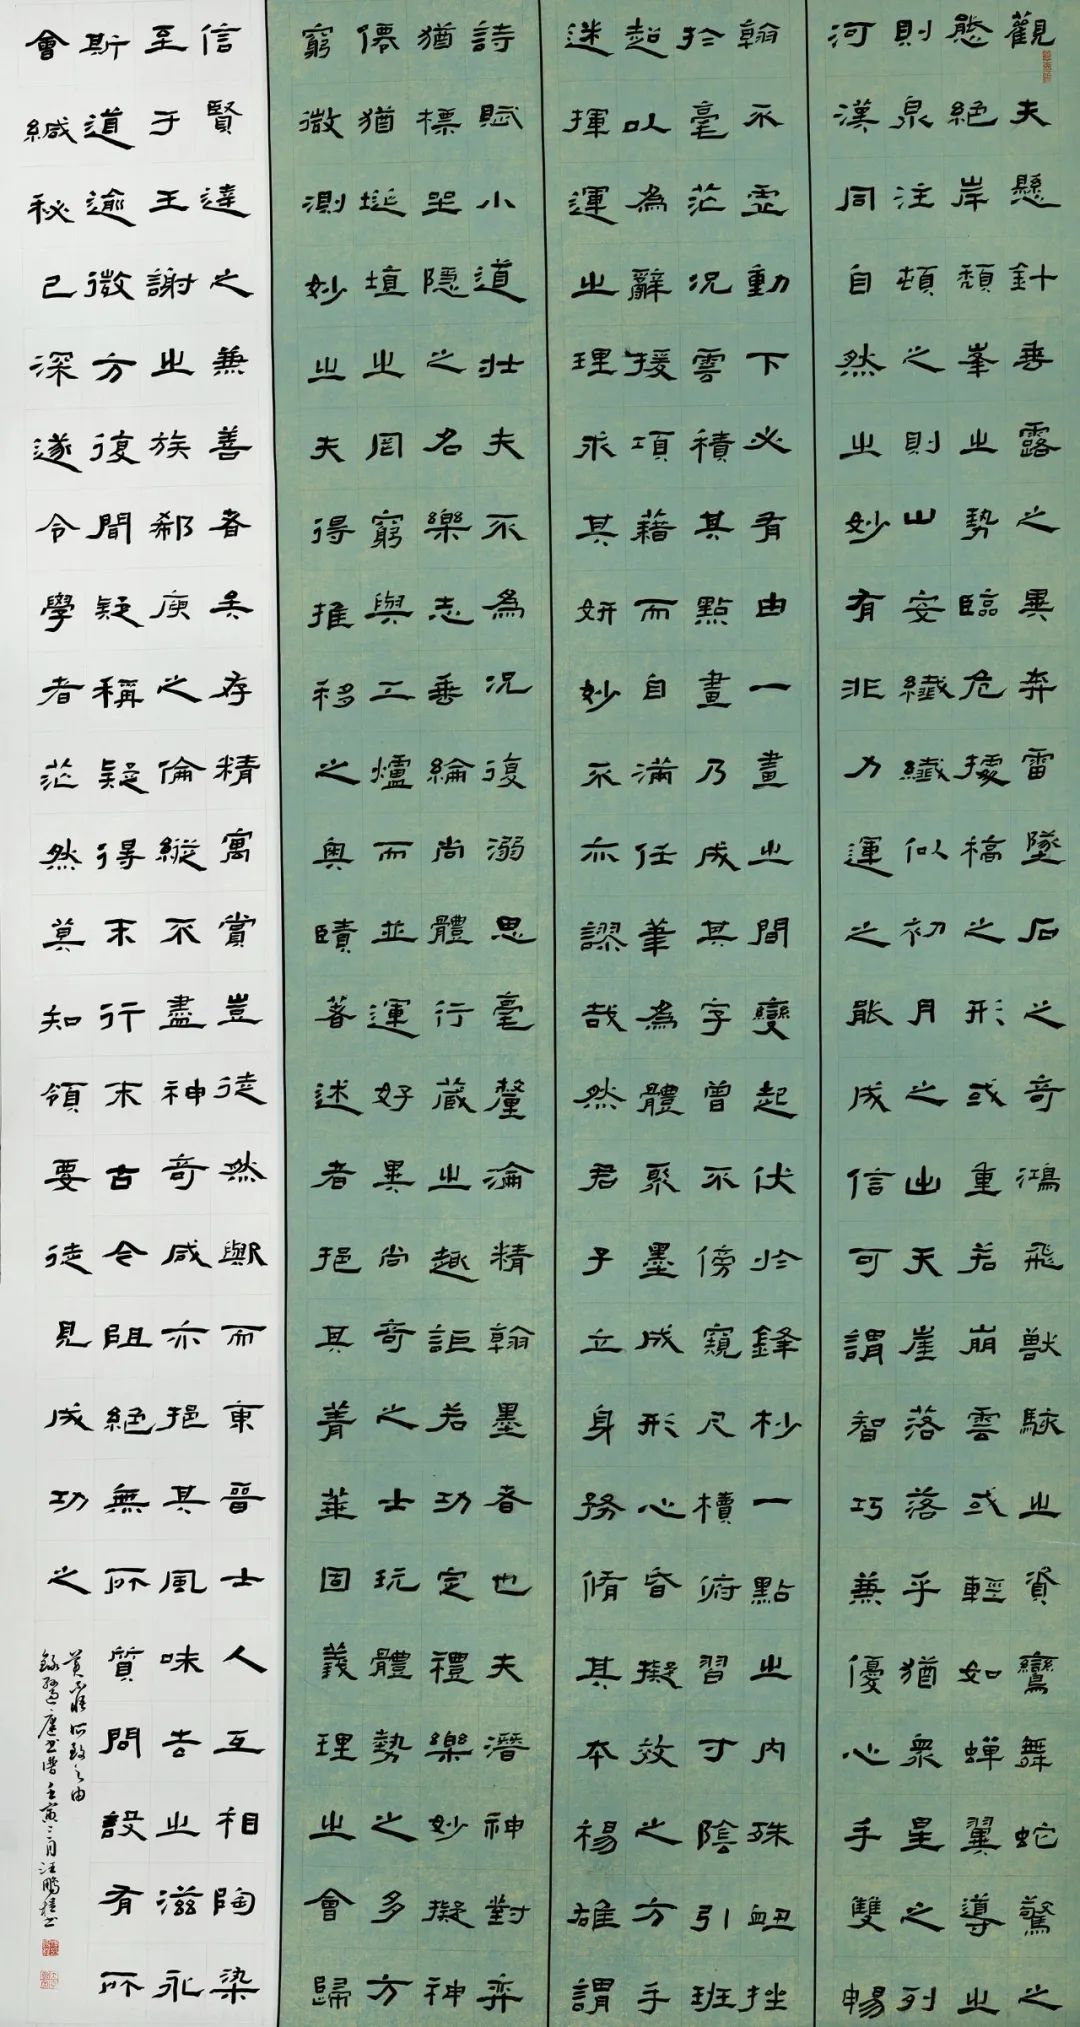 觀夫懸針垂露之異奔雷墜石之奇鴻飛獸駭之資鸞舞蛇驚之
態絕岸頹峯之勢臨危據槁之形或重若崩雲或輕如蟬翼導之
則泉注頓之則山安纖纖似初月之出天崖落落乎猶眾星之列
河漢同自然之妙有非力運之能成信可謂智巧兼優心手雙暢
翰不虛動下必有由一畫之間變起伏於鋒杪一點之內殊衄挫
於毫芒況雲積其點畫乃成其字曾不傍窺尺櫝俯習寸陰引班
超以為辭援項藉而自滿任筆為體聚墨成形心昏擬效之方手
迷揮運之理求其妍妙不亦謬哉然君子立身務脩其本楊雄謂
詩賦小道壯夫不為況復溺思毫釐淪精翰墨者也夫潛神對弈
猶標坐隱之名樂志垂綸尚體行藏之趣詎若功定禮樂妙擬神
僊猶埏埴之罔窮與工爐而並運好異尚奇之士玩體勢之多方
窮微測妙之夫得推移之奧賾著述者挹其菁華固義理之會歸
信賢達之兼善者矣存精寓賞豈徒然歟而東晉士人互相陶染
至于王謝之族郗庾之倫縱不盡神奇咸亦挹其風味去之滋永
斯道逾微方復聞疑稱疑得末行末古今阻絕無所質問設有所
會緘秘已深遂令學者茫然莫知領要徒見成功之
美不悟所致之由
錄孫過庭書譜壬寅二月汪鵬書